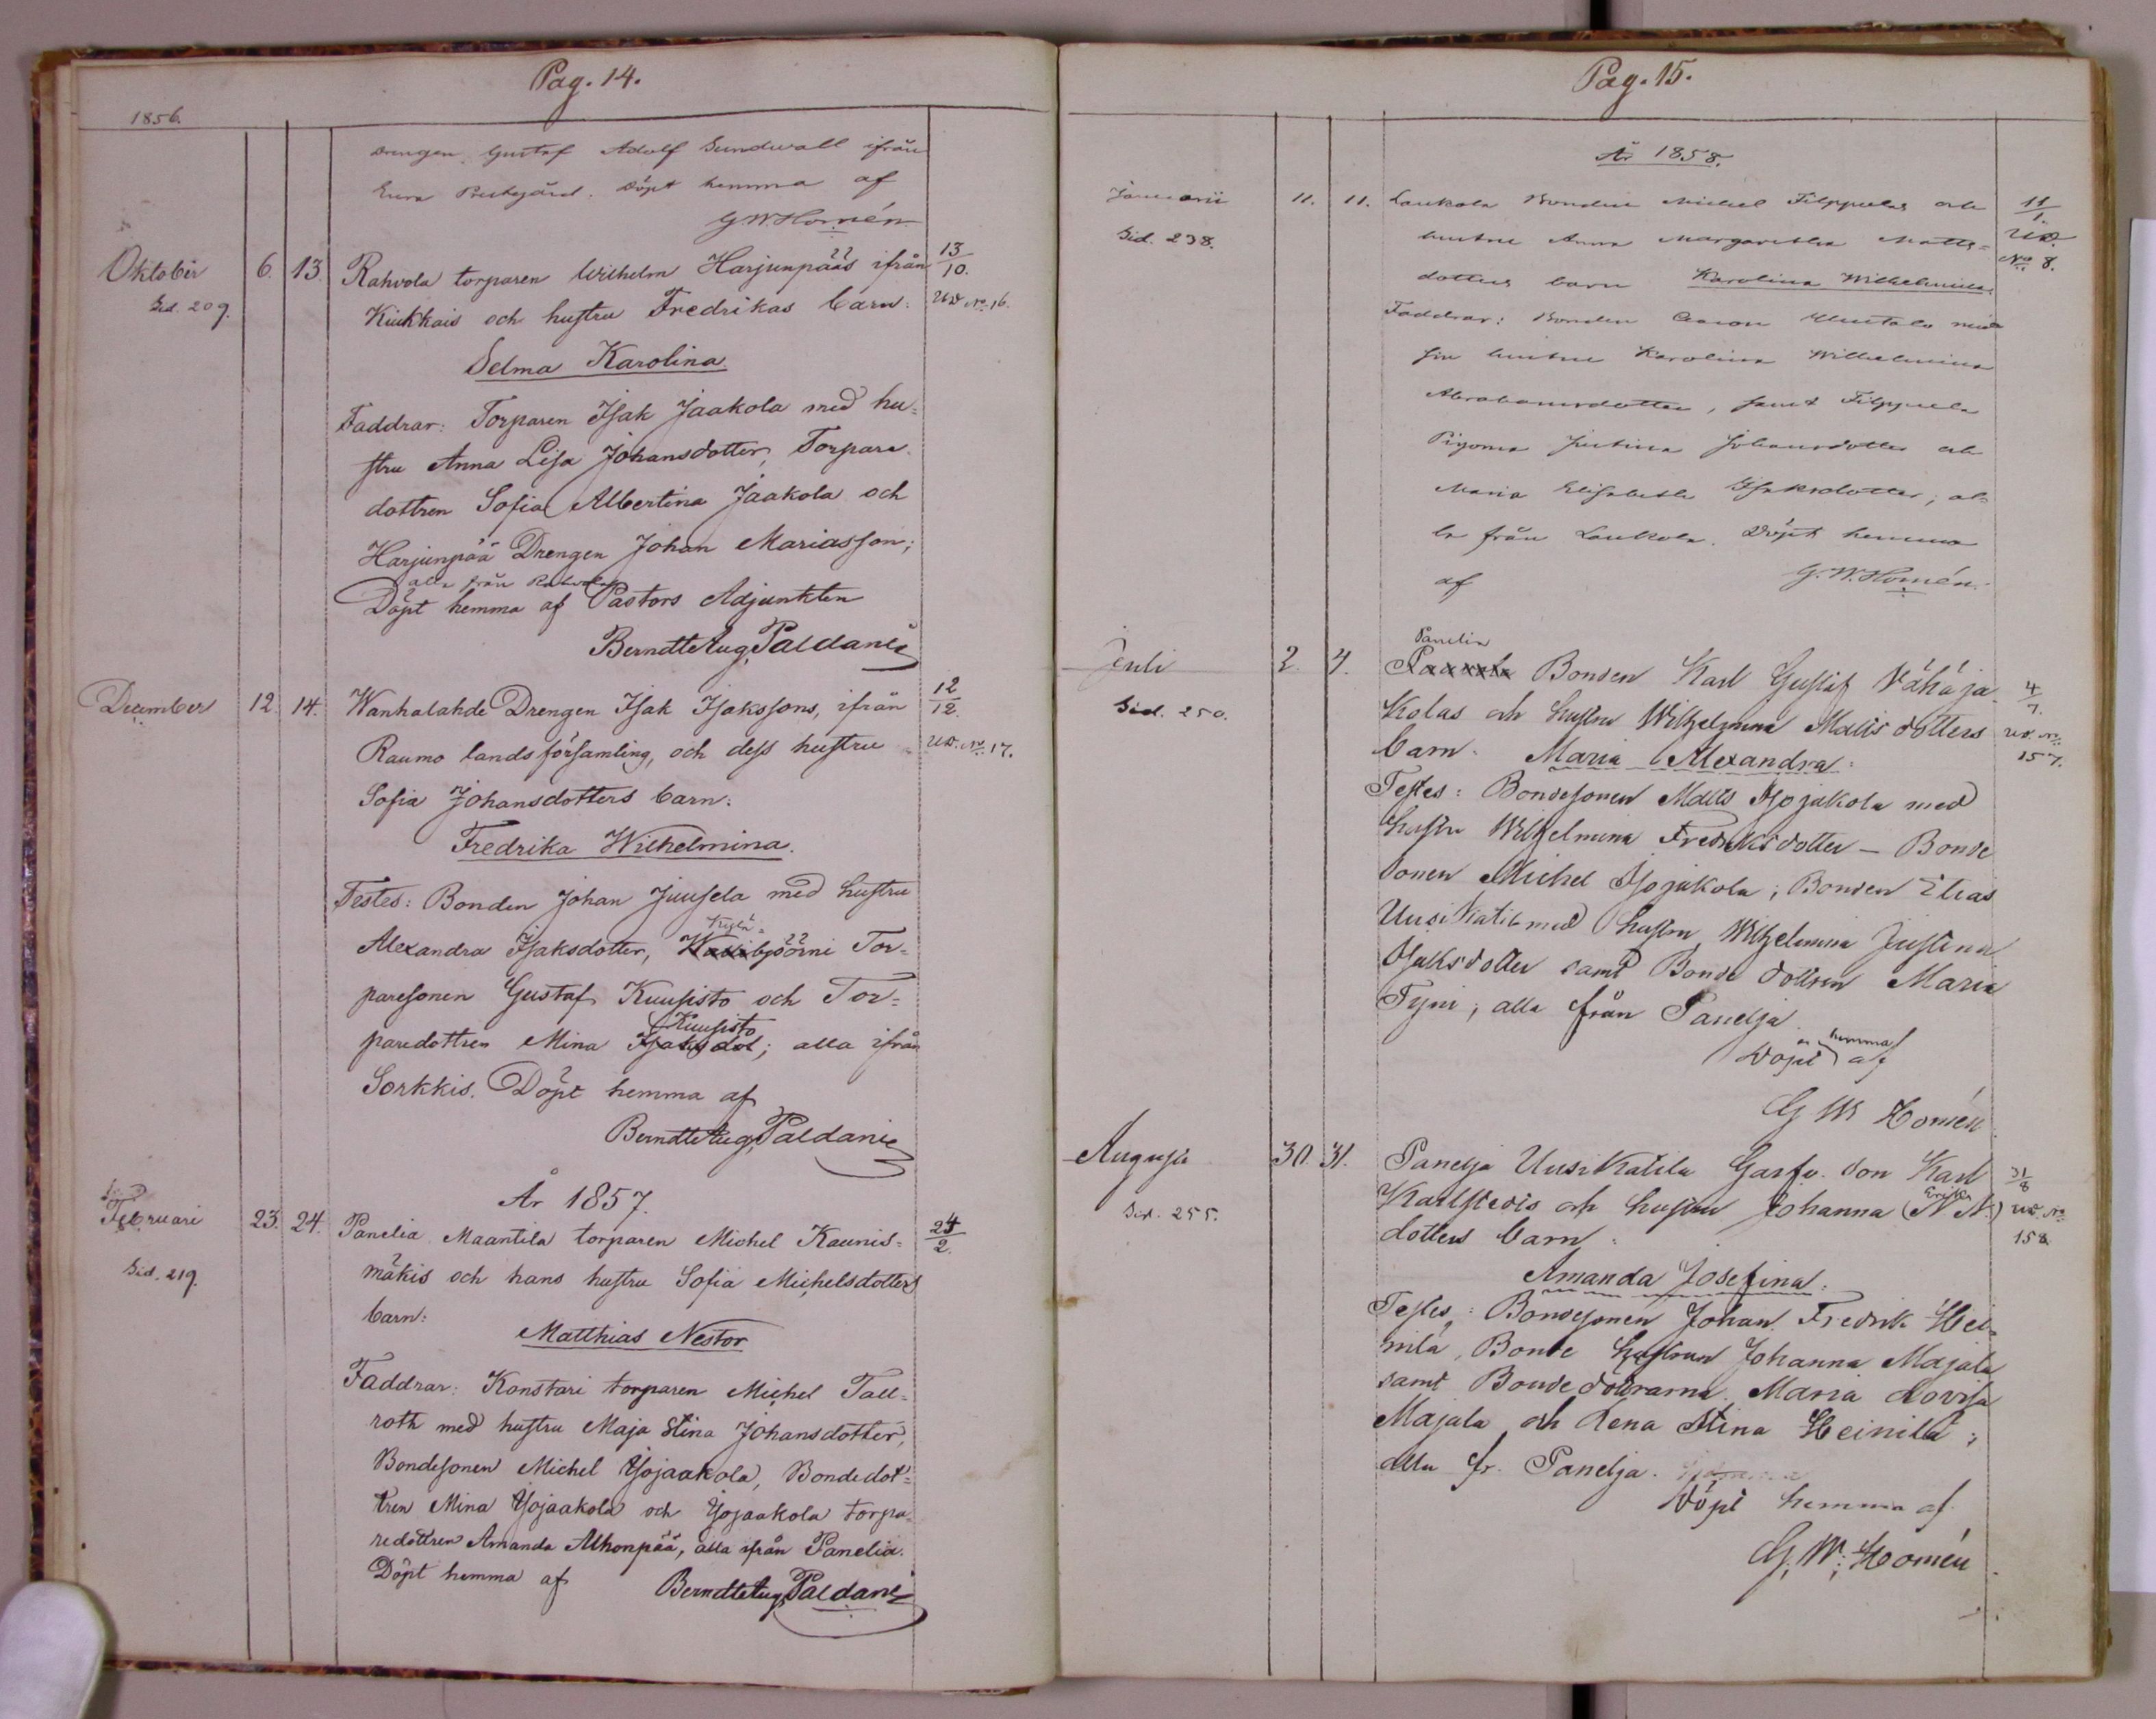 Pag. 14.
1856.
Drengen Gustaf Adolf Sundwall ifrån
Eura Prestegård. Döpt hemma af
G. W. Homén
Oktober 6. 13. Rahvola torparen Wilhelm Harjunpääs ifrån 13/10.
Sid. 209. Kiukkais och hustru Fredrikas barn: No 16.
Selma Karolina.
Faddrar: Torparen Isak Jaakola med hu=
stru Anna Lisa Johansdotter, Torpare
dottren Sofia Albertina Jaakola och
Harjunpää Drengen Johan Mariasson;
alla från Rahvola
Döpt hemma af Pastors Adjunkten
Berndt Aug. Paldani
December 12. 14. Wanhalahde Drengen Isak Isakssons, ifrån 12/12.
Raumo landsförsamling, och dess hustru No 17.
Sofia Johansdotters barn:
Fredrika Wilhelmina.
Testes: Bonden Johan Juusela med hustru
Kylä=
Alexandra Isaksdotter, björni Tor=
paresonen Gustaf Kuusisto och Tor=
Kuusisto
paredottren Mina Isaksdot; alla ifrån
Sorkkis. Döpt hemma af
Berndt Aug. Paldani
År 1857.
Februari 23. 24. Panelia Maantila torparen Michel Kaunis= 24/2.
Sid. 219. mäkis och hans hustru Sofia Michelsdotters
barn:
Matthias Nestor
Faddrar: Konstari torparen Michel Tall=
roth med hustru Maja Stina Johansdotter,
Bondesonen Michel Isojaakola, Bondedot=
tren Mina Isojaakola och Isojaakola torpa=
redottren Amanda Alhonpää, alla ifrån Panelia.
Döpt hemma af Berndt Aug. Paldani
Pag. 15.
År 1858.
Januarii 11. 11. Laukola Bonden Michel Filppulas och 11/1.
Sid. 238. hustru Anna Margaretha Matts= No 8.
dotters barn Karolina Wilhelmina.
Faddrar: Bonden med
sin hustru Karolina Wilhelmina
Abrahamsdotter, samt Filppula
Pigorna Justina Johansdotter och
Maria Elisabeth Isaksdotter; al=
la från Laukola. Döpt hemma
af G. W. Homén.
Panelia
Juli 2. 4. Bonden Karl Gustaf Vähäja 4/7.
Sid. 250. kolas och hustru Wilhelmina Mattsdotters No
barn: Maria Alexandra: 157.
Testes: Bondesonen Matts Isojakola med
hustru Wilhelmina Fredriksdotter – Bonde
sonen Michel Isojakola; Bonden Elias
Uusi Katila med hustru Wilhelmina Justina
Isaksdotter samt Bonde dottren Maria
Tyni; alla från Panelja.
hemma
Döpt af
G W Homén
Augusti 30. 31. Panelja Uusi Katila Garfv. Son Karl 31/8
Eriks
Sid. 255. Karlstedts och hustru Johanna (N N.) No
dotters barn: 158.
Amanda Josefina:
Testes: Bondesonen Johan Fredrik Hei=
nilä, Bonde hustrun Johanna Majala
samt Bonde döttrarna Maria Lovisa
Majala och Lena Stina Heinilä;
alla fr. Panelja.
Döpt hemma af
G. W. Homén